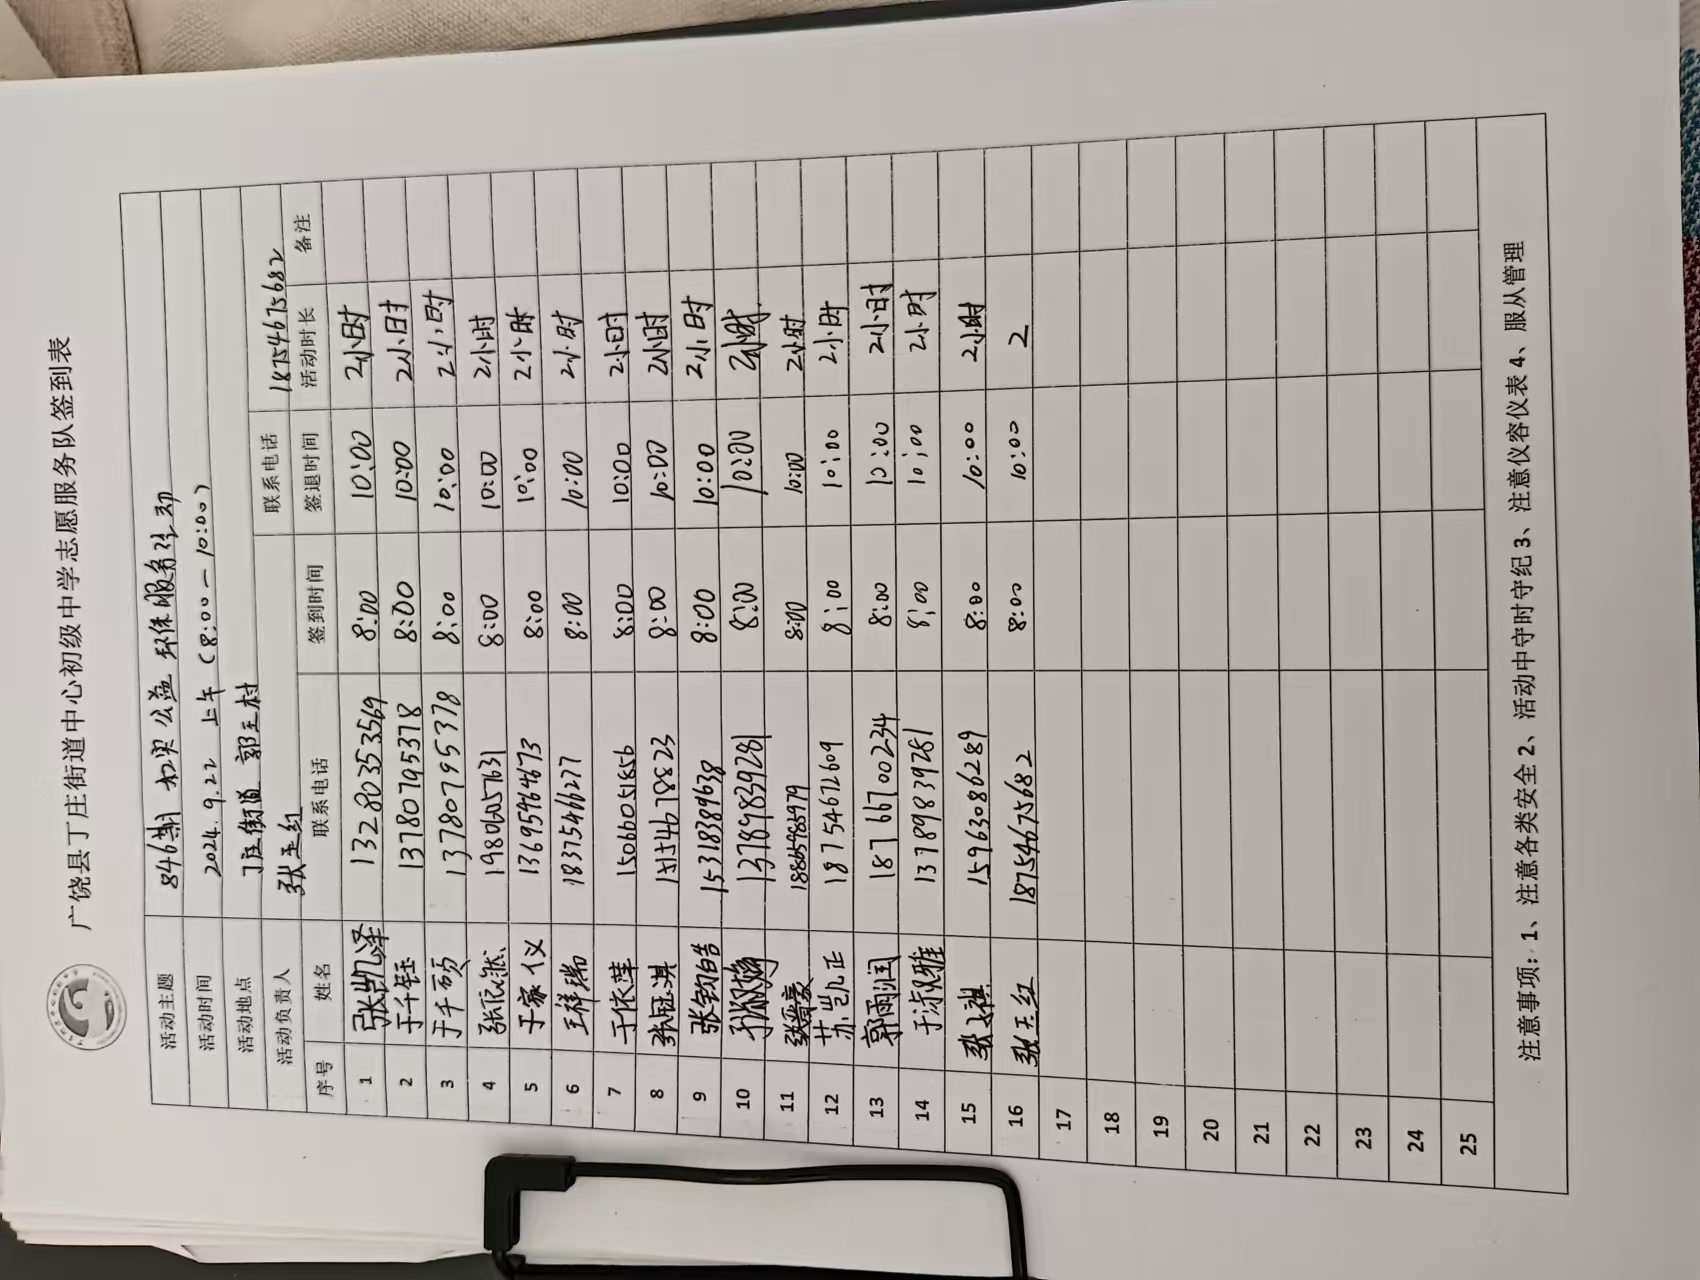 广饶县丁庄街道中心初级中学志愿服务队签到表
活动主题 846期 和美公益 环保服务活动
活动时间 2024.9.22 上午(8:00—10:00)
活动地点 丁庄街道 郭王村
活动负责人 张玉红 联系电话 18754675682
序号 姓名 联系电话 签到时间 签退时间 活动时长 备注
1 张凯泽 13280353569 8:00 10:00 2小时
2 于千钰 13780795378 8:00 10:00 2小时
3 于千硕 13780795378 8:00 10:00 2小时
4 张依然 19806057631 8:00 10:00 2小时
5 于家仪 13695464673 8:00 10:00 2小时
6 王梓瑞 18375466277 8:00 10:00 2小时
7 于依萍 15066051856 8:00 10:00 2小时
8 张冠淇 15154678823 8:00 10:00 2小时
9 张钧皓 15318389638 8:00 10:00 2小时
10 13789839281 8:00 10:00 2小时
11 18865985979 8:00 10:00 2小时
12 苏凯正 18754672609 8:00 10:00 2小时
13 郭雨润 18766700234 8:00 10:00 2小时
14 于淑雅 13789839281 8:00 10:00 2小时
15 15963086289 8:00 10:00 2小时
16 张玉红 18754675682 8:00 10:00 2
17
18
19
20
21
22
23
24
25
注意事项:1、注意各类安全 2、活动中守时守纪 3、注意仪容仪表 4、服从管理